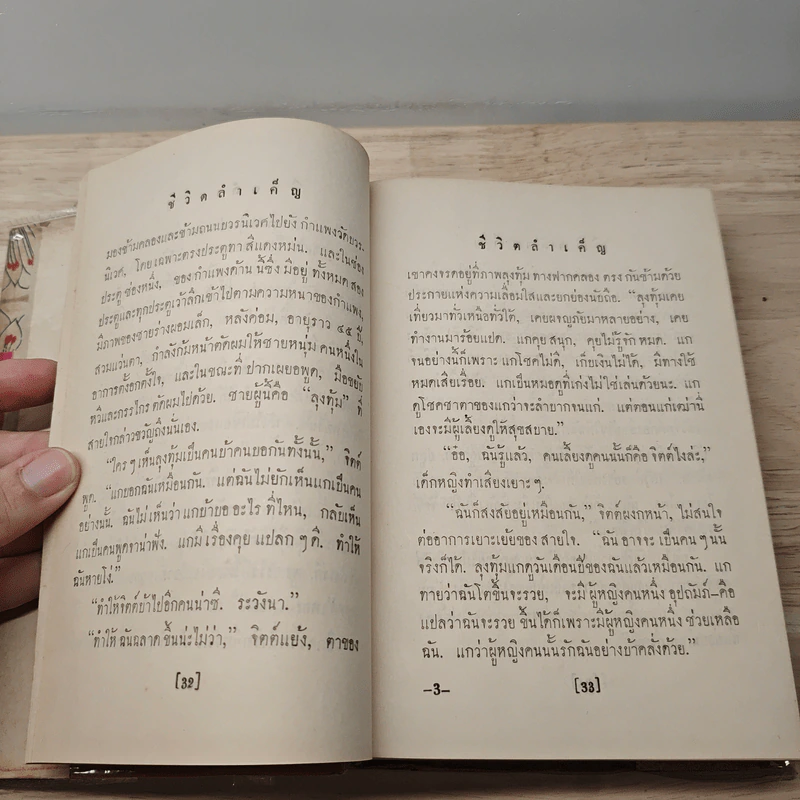 ชีวิตลำเค็ญ
มองข้ามคลองและข้ามถนนบวรนิเวศไปยัง กำแพงวัดบวร-
นิเวศ, โดยเฉพาะตรงประตูทา สีแดงหม่น, และในช่อง
ประตู ช่องหนึ่ง, ของกำแพงด้าน นี้ซึ่ง มีอยู่ ทั้งหมด สอง
ประตูและทุกประตูเว้าลึกเข้าไปตามความหนาของกำแพง,
มีภาพของชายร่างผอมเล็ก, หลังค่อม, อายุราว ๔๕ ปี,
สวมแว่นตา, กำลังก้มหน้าตัดผมให้ชายหนุ่ม คนหนึ่งใน
อาการตั้งอกตั้งใจ, และในขณะที่ ปากเผยอพูด, มือขยับ
หวีและกรรไกร ตัดผมไปด้วย. ชายผู้นี้คือ “ลุงทุ้ม” ที่
สายใจกล่าวขวัญถึงนั่นเอง.
“ใคร ๆ เห็นลุงทุ้มเป็นคนบ้าคนบอกันทั้งนั้น,” จิตต์
พูด. “แกบอกฉันเหมือนกัน. แต่ฉันไม่ยักเห็นแกเป็นคน
อย่างนั้น. ฉันไม่เห็นว่า แกบ้าบอ อะไร ที่ไหน, กลับเห็น
แกเป็นคนพูดจาน่าฟัง. แกมี เรื่องคุย แปลก ๆ ดี. ทำให้
ฉันหายโง่.”
“ทำให้จิตต์บ้าไปอีกคนน่าซี. ระวังนา.”
“ทำให้ ฉันฉลาด ขึ้นน่ะไม่ว่า,” จิตต์แย้ง, ตาของ
[32]
ชีวิตลำเค็ญ
เขาคงจรดอยู่ที่ภาพลุงทุ้ม ทางฟากคลอง ตรง กันข้ามด้วย
ประกายแห่งความเลื่อมใสและยกย่องนับถือ. “ลุงทุ้มเคย
เที่ยวมาทั่วเหนือทั่วใต้, เคยผจญภัยมาหลายอย่าง, เคย
ทำงานมาร้อยแปด. แกคุย สนุก, คุยไม่รู้จัก หมด. แก
จนอย่างนี้ก็เพราะ แกโชคไม่ดี, เก็บเงินไม่ได้, มีทางใช้
หมดเสียเรื่อย. แกเป็นหมอดูที่เก่งไม่ใช่เล่นด้วยนะ. แก
ดูโชคชาตาของแกว่าจะลำบากจนแก่. แต่ตอนแก่เฒ่านี่
เองจะมีผู้เลี้ยงดูให้สุขสบาย.”
“อ๋อ, ฉันรู้แล้ว, คนเลี้ยงดูคนนั้นก็คือ จิตต์ไงล่ะ,”
เด็กหญิงทำเสียงเยาะ ๆ.
“ฉันก็สงสัยอยู่เหมือนกัน,” จิตต์ผงกหน้า, ไม่สนใจ
ต่ออาการเยาะเย้ยของ สายใจ. “ฉัน อาจจะ เป็นคน ๆ นั้น
จริงก็ได้. ลุงทุ้มแกดูวันเดือนปีของฉันแล้วเหมือนกัน. แก
ทายว่าฉันโตขึ้นจะรวย, จะมี ผู้หญิงคนหนึ่ง อุปถัมภ์-คือ
แปลว่าฉันจะรวย ขึ้นได้ก็เพราะมีผู้หญิงคนหนึ่ง ช่วยเหลือ
ฉัน. แกว่าผู้หญิงคนนั้นรักฉันอย่างบ้าคลั่งด้วย.”
–3–
[33]